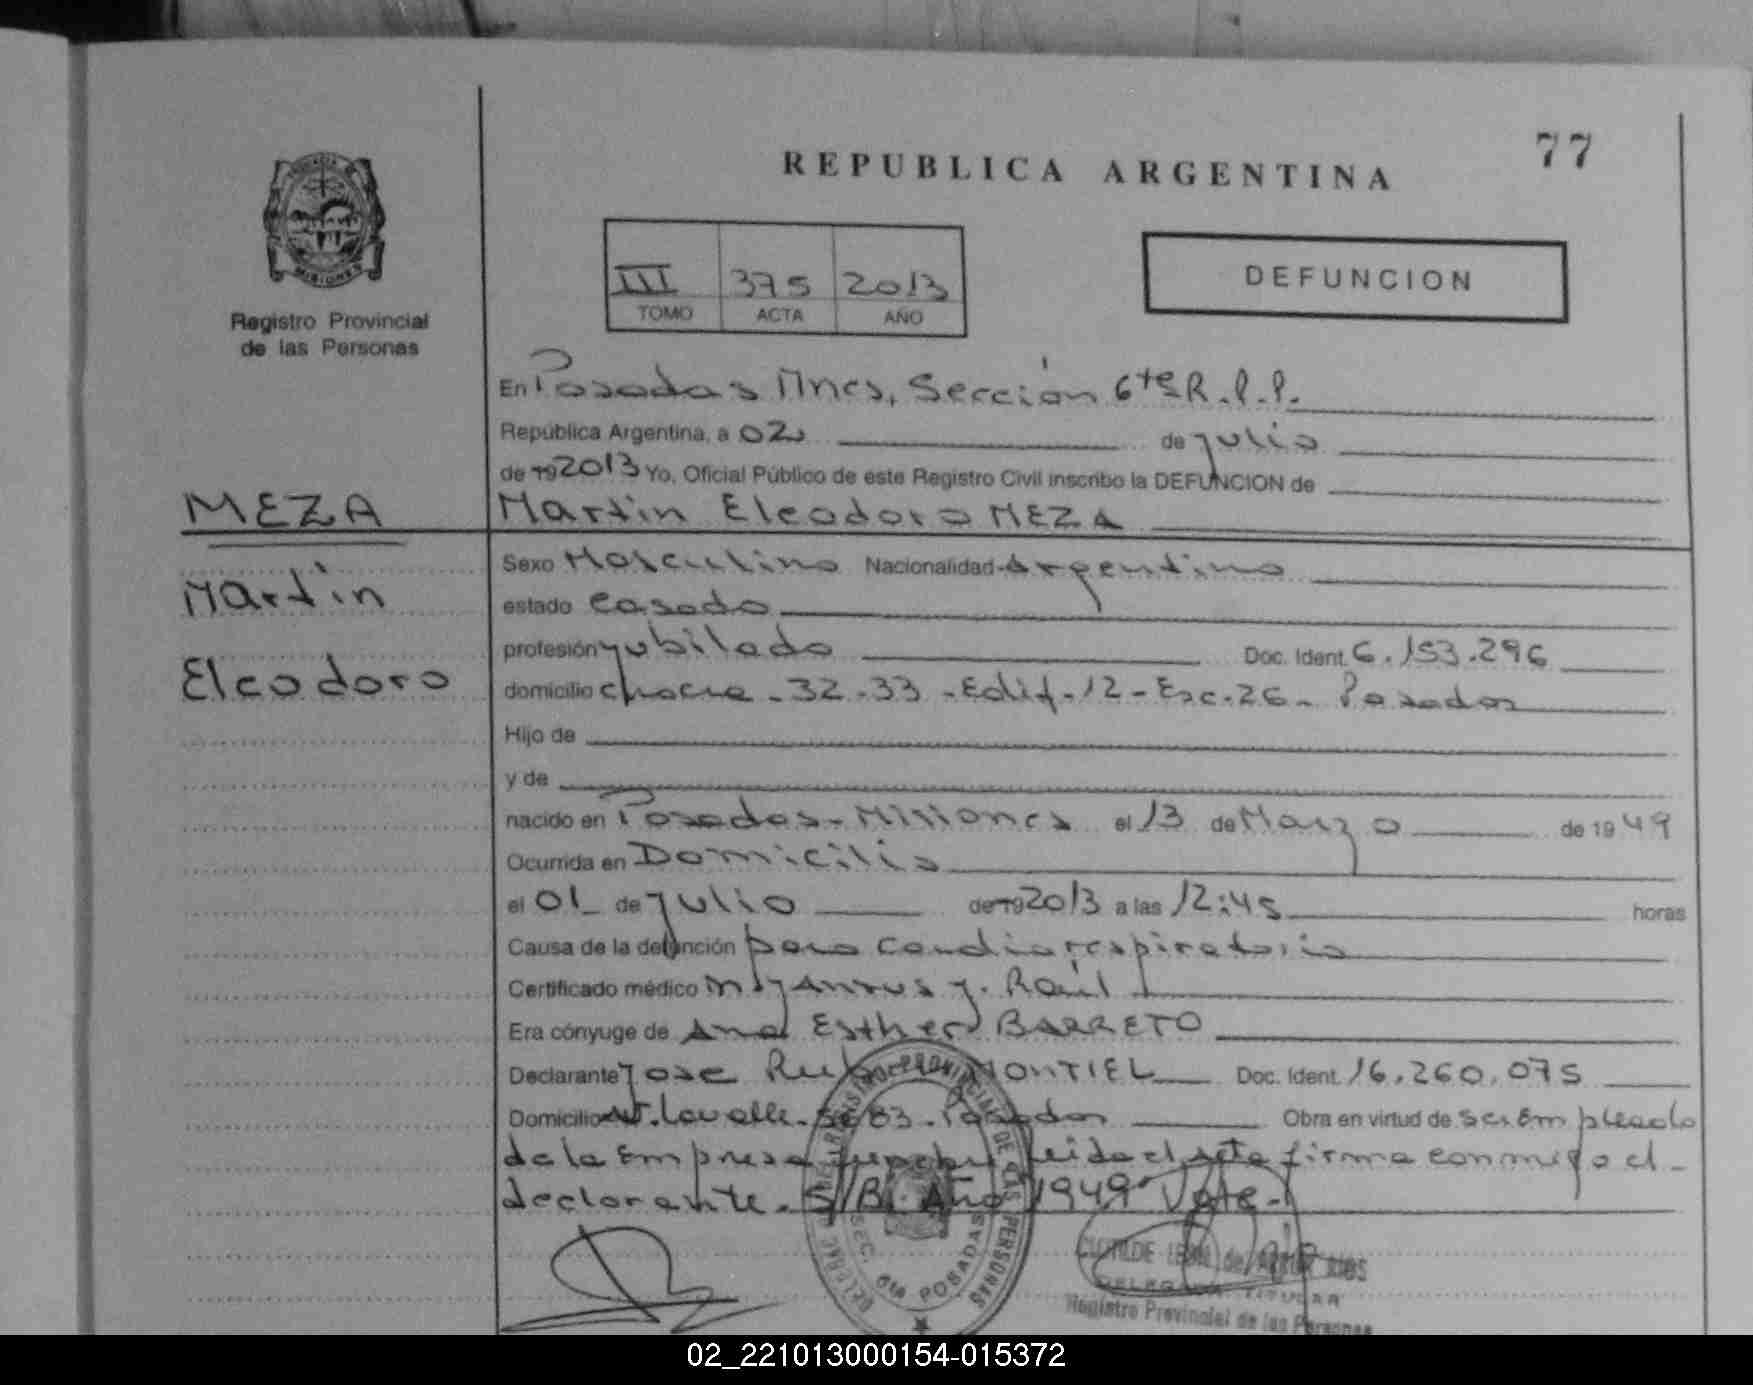 77
REPUBLICA ARGENTINA
III 375 2013
TOMO ACTA AÑO
DEFUNCION
MISIONES
Registro Provincial
de las Personas
En Posadas Mnes, Sección 6ta R.P.P.
República Argentina, a 02 de julio
de 19 2013 Yo, Oficial Público de este Registro Civil inscribo la DEFUNCION de
MEZA
Martin Eleodoro MEZA
Martin
Eleodoro
Sexo Masculino Nacionalidad Argentino
estado casado
profesión jubilado Doc. Ident. 6.153.296
domicilio chacra - 32-33 - Edif-12- Esc-26- Posadas
Hijo de
y de
nacido en Posadas - Misiones el 13 de Marzo de 19 49
Ocurrida en Domicilio
el 01 de julio de 19 2013 a las 12:45 horas
Causa de la defunción paro cardiorespiratorio
Certificado médico J. Raúl
Era cónyuge de Ana Esther BARRETO
Declarante Jose MONTIEL Doc. Ident. 16.260.075
Domicilio Lavalle - Posadas Obra en virtud de ser Empleado
de la Empresa leida el acta firma conmigo el
declarante. S/B. Año 1949 Vale.
REGISTRO PROVINCIAL DE LAS PERSONAS
SEC. 6ta POSADAS
CLOTILDE de
DELEGADA TITULAR
Registro Provincial de las Personas
02_221013000154-015372